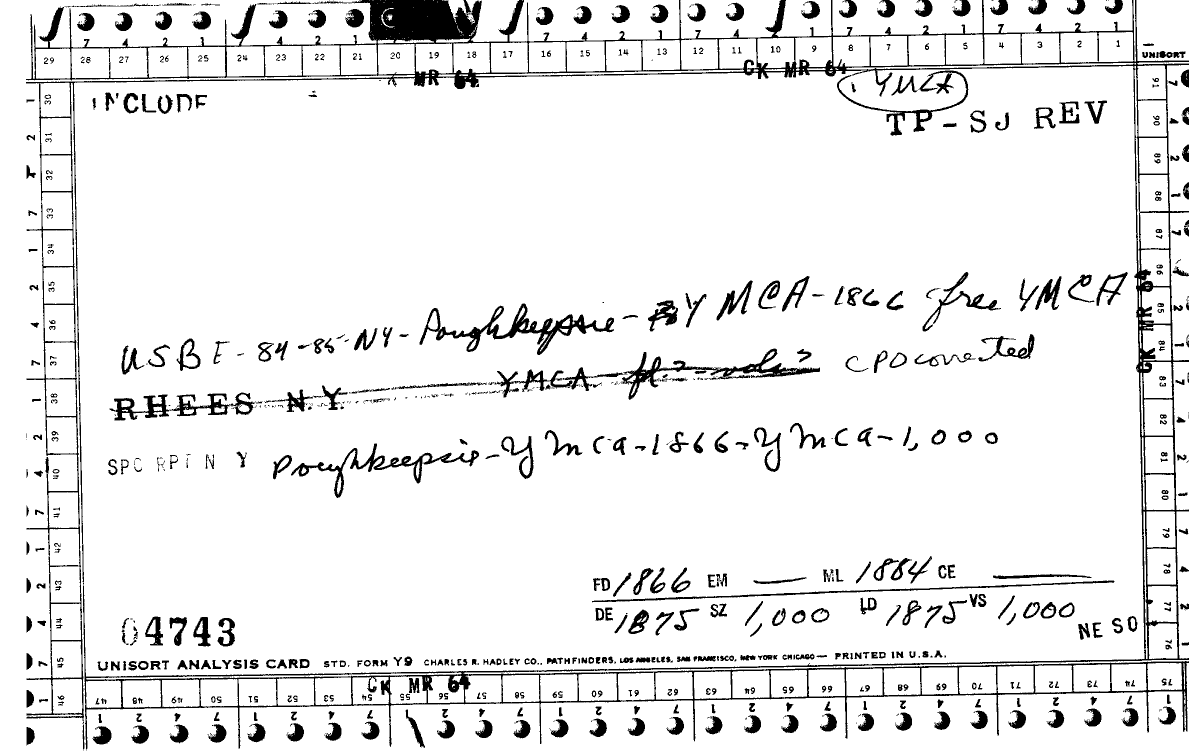 7 4 2 1 7 4 2 1 7 4 2 1 7 4 2 1 7 4 2 1
29 28 27 26 25 24 23 22 21 20 19 18 17 16 15 14 13 12 11 10 9 8 7 6 5 4 3 2 1 UNISORT
MR 64 CK MR 64
INCLUDE YMCA
TP-SJ REV
USBE-84-85-NY-Poughkeepsie-YMCA-1866 free YMCA
RHEES N.Y. Y.M.C.A. fl.? vols? CPD corrected
SPC RPT N Y Poughkeepsie-YMCA-1866-YMCA-1,000
FD 1866 EM — ML 1884 CE —
DE 1875 SZ 1,000 LD 1875 VS 1,000
NE SO
04743
UNISORT ANALYSIS CARD STD. FORM Y9 CHARLES R. HADLEY CO., PATHFINDERS, LOS ANGELES, SAN FRANCISCO, NEW YORK CHICAGO — PRINTED IN U.S.A.
CK MR 64
47 48 49 50 51 52 53 54 55 56 57 58 59 60 61 62 63 64 65 66 67 68 69 70 71 72 73 74 75
30
31
32
33
34
35
36
37
38
39
40
41
42
43
44
45
46
91
90
89
88
87
86
85
84
83
82
81
80
79
78
77
76
CK MR 64